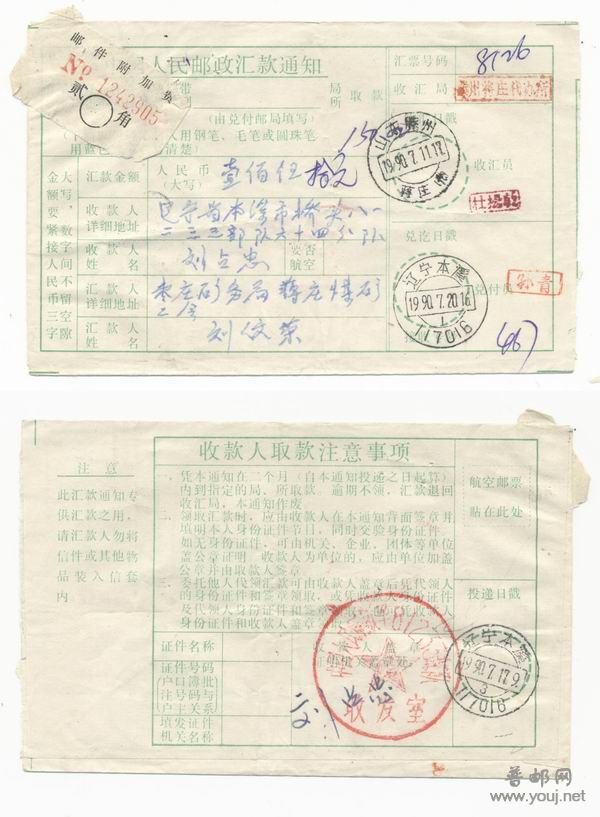 邮件附加费
No 1242905
贰角
人民邮政汇款通知
汇票号码
8126
局
所取款
收汇局
州蒋庄代办所
(由兑付邮局填写)
人用钢笔、毛笔或圆珠笔
用蓝色
清楚)
山东滕州
1990.7.11.17
蒋庄
收汇员
大写,数字间不留空隙
金额要紧接人民币三字
汇款金额
人民币
(大写)
壹佰伍拾元
收款人
详细地址
辽宁省本溪市桥头八一
二三三部队六十四分队
收款人
姓名
刘占忠
要否
航空
兑讫日戳
汇款人
详细地址
枣庄矿务局蒋庄煤矿
汇款人
姓名
辽宁本溪
1990.7.20.16
1
117016
兑付员
孙青
收款人取款注意事项
注意
此汇款通知专
供汇款之用,
请汇款人勿将
信件或其他物
品装入信套
内
一、凭本通知在二个月(自本通知投递之日起算)
内到指定的局、所取款。逾期不领,汇款退回
收汇局,本通知作废
二、领取汇款时,应由收款人在本通知背面签章并
填明本人身份证件节目,同时交验身份证件。
如无身份证件,可由机关、企业,团体等单位
盖公章证明。收款人为单位的,应由单位加盖
公章并由取款人签章
三、委托他人代领汇款可由收款人盖章后凭代领人
航空邮票
贴在此处
投递日戳
证件名称
证件号码
(户口簿批
注号码与
户主关系)
填发证件
机关名称
收发室
辽宁本溪
1990.7.17.9
3
117016
普邮网
www.youj.net